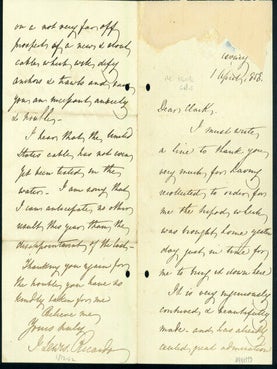 1 April, 58.
Dear Clark,
I must write
a line to thank you
very much, for having
recollected to order for
me the tripod, which
was brought home yester
day just in time for
me to bring it down here
It is very ingeniously
contrived, & beautifully
made and has already
excited great admiration
on a not very far off
prospect of a new & stout
cable which will defy
anchors & trawls and save
you an incessant anxiety
& trouble—
I hear that the United
States cable, has not even
yet been tested, in the
water— I am sorry that
I can anticipate no other
result, this year, than the
disappointment of the last—
Thanking you again for
the trouble you have so
kindly taken for me
Believe me
Yours truly
J Lewis Ricardo